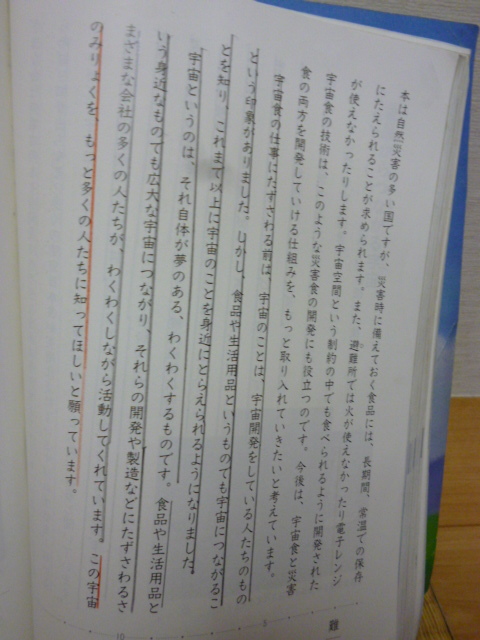 本は自然災害の多い国ですが、災害時に備えておく食品には、長期間、常温での保存
にたえられることが求められます。また、避難所では火が使えなかったり電子レンジ
が使えなかったりします。宇宙空間という制約の中でも食べられるように開発された
宇宙食の技術は、このような災害食の開発にも役立つのです。今後は、宇宙食と災害
食の両方を開発していける仕組みを、もっと取り入れていきたいと考えています。
宇宙食の仕事にたずさわる前は、宇宙のことは、宇宙開発をしている人たちのもの
という印象がありました。しかし、食品や生活用品というものでも宇宙につながるこ
とを知り、これまで以上に宇宙のことを身近にとらえられるようになりました。
宇宙というのは、それ自体が夢のある、わくわくするものです。食品や生活用品と
いう身近なものでも広大な宇宙につながり、それらの開発や製造などにたずさわるさ
まざまな会社の多くの人たちが、わくわくしながら活動してくれています。この宇宙
のみりょくを、もっと多くの人たちに知ってほしいと願っています。
難
5
10